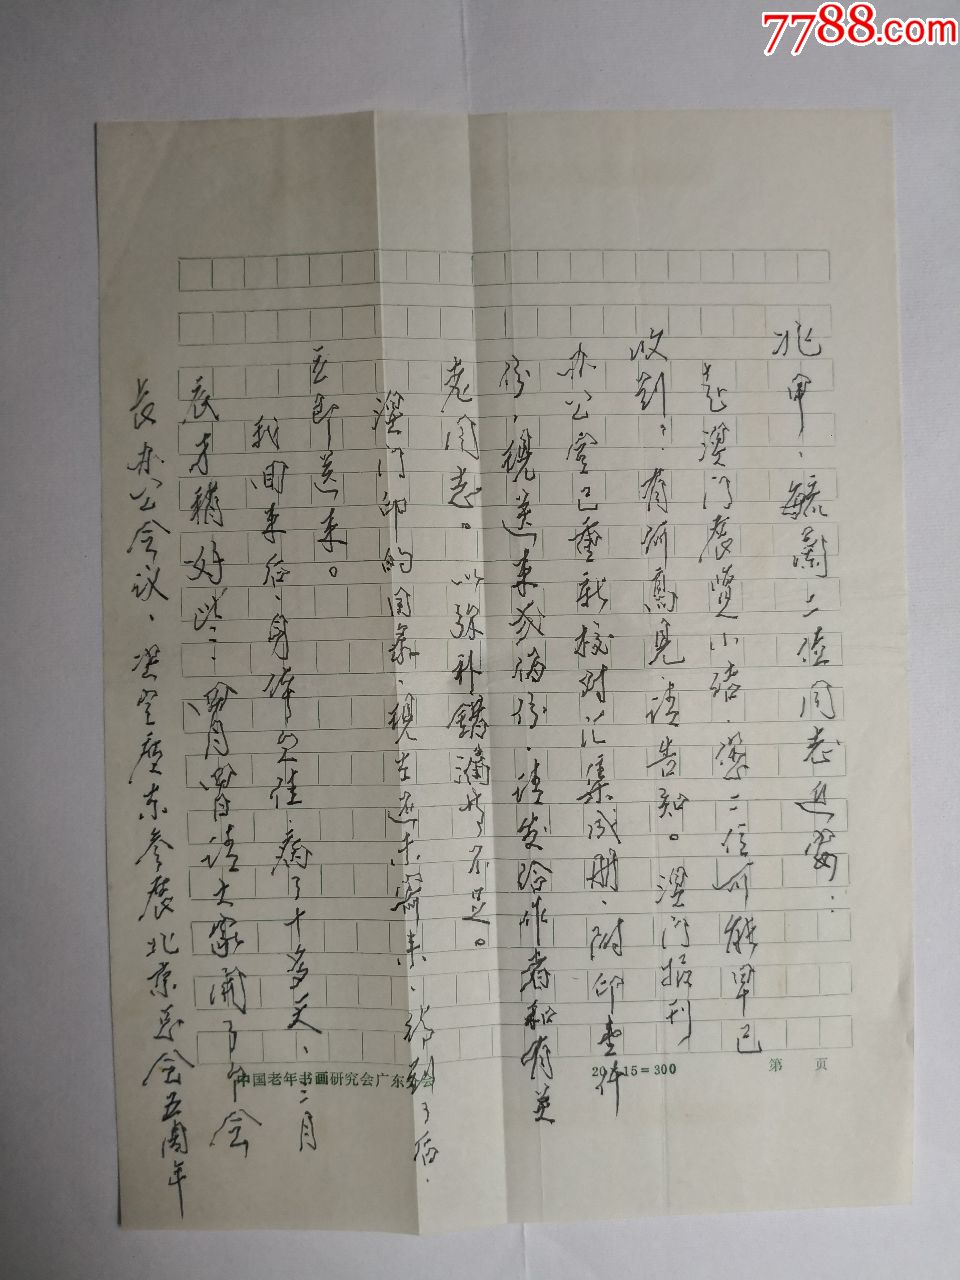 7788.com
兆甲、毓蘅二位同志近安：
赴澳门展览小结，您二位可能早已
收到，有何高见，请告知。澳门报刊
办公室已重新校对汇集成册，附印壹件
份，现送来贰份，请发给作者和有关
老同志。以弥补错漏的不足。
澳门印的图录，现在还未寄来，待到了后，
立即送来。
我回来后，身体欠佳，病了十多天，三月
底才稍好些，四月请大家开了个会
长办公会议，决定广东参展北京总会五周年
中国老年书画研究会广东分会
20×15=300
第 页